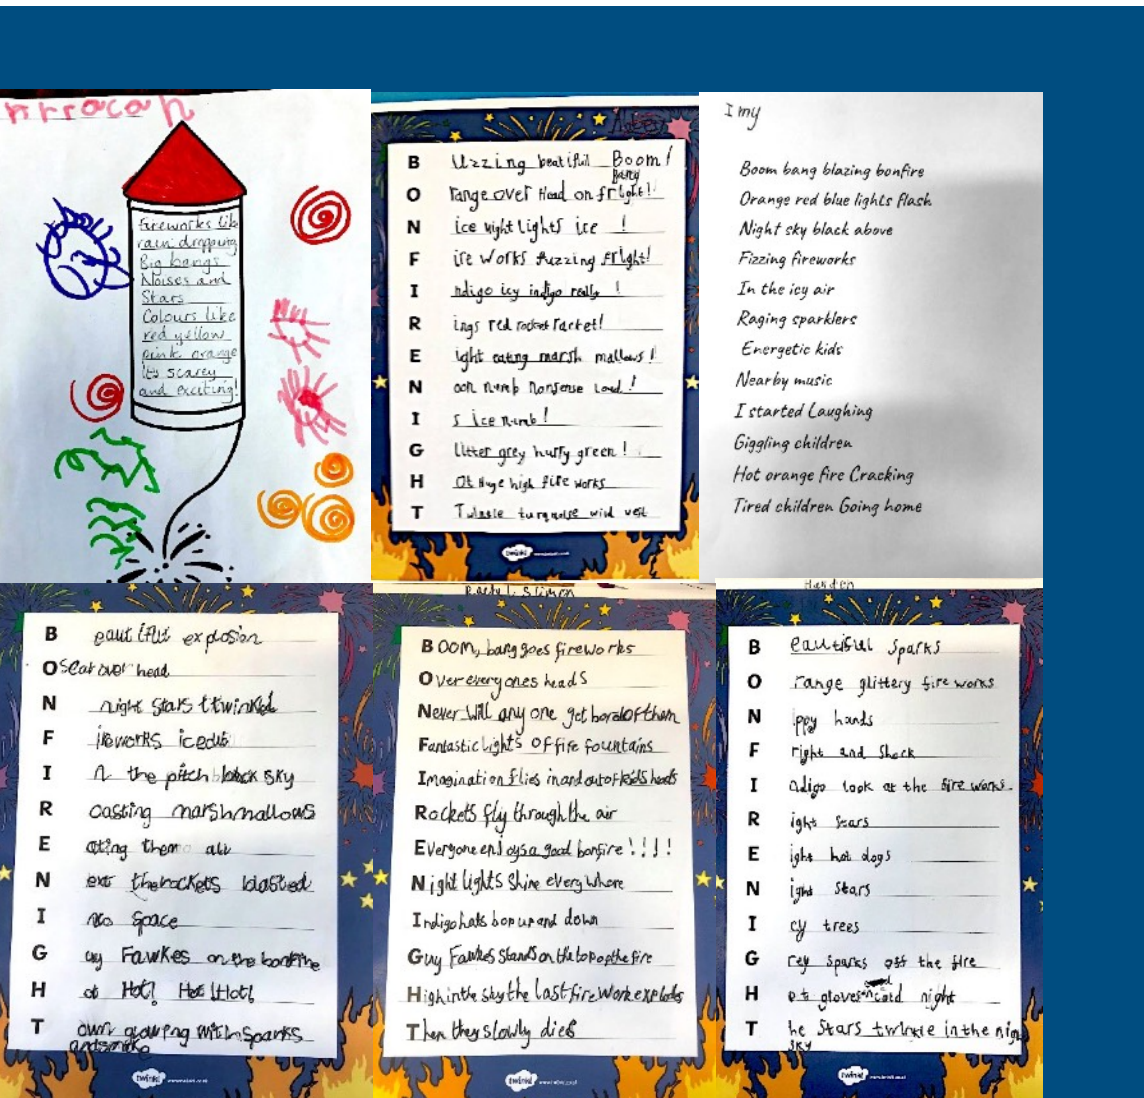 Fireworks like
rain dropping
Big bangs
Noises and
Stars
Colours like
red yellow
pink orange
its scarey
and exciting!
B Uzzing beatiful Boom!
Bang
O range over Head on fright!
N ice night lights ice !
F ire works fuzzing fright!
I ndigo icy indigo really !
R ings red rocket racket!
E ight eating marsh mallows!
N ooh numb nonsense Loud!
I s ice numb!
G litter grey hurry green!
H Ot Huge high fire works
T winkle turquoise wind
twinkl www.twinkl.co.uk
I my
Boom bang blazing bonfire
Orange red blue lights flash
Night sky black above
Fizzing fireworks
In the icy air
Raging sparklers
Energetic kids
Nearby music
I started Laughing
Giggling children
Hot orange fire Cracking
Tired children Going home
B eautiful explosion
O Sear over head
N night stars twinked
F ireworks iced
I n the pitch black sky
R oasting marshmallows
E ating them all
N ext the rockets blasted
I nto Space
G uy Fawkes on the bonfire
H ot Hot! Hot! Hot!
T own glowing with sparks
and smoke
twinkl www.twinkl.co.uk
BOOM, bang goes fireworks
Over every ones heads
Never Will any one get bord of them
Fantastic lights Of fire fountains
Imagination flies in and out of kids heads
Rockets fly through the air
Everyone enjoys a good bonfire!!!!
Night lights Shine every where
Indigo hats bop up and down
Guy Fawkes Stands on the top op the fire
High in the sky the last fire work explodes
Then they slowly dies
twinkl www.twinkl.co.uk
Hayden
B eautiful Sparks
O range glittery fire works
N ippy hands
F right and Shock
I ndigo look at the fire works
R ight Stars
E ight hot dogs
N ight Stars
I cy trees
G rey sparks off the fire
H ot gloves on cold night
T he Stars twinkle in the night
sky
twinkl www.twinkl.co.uk